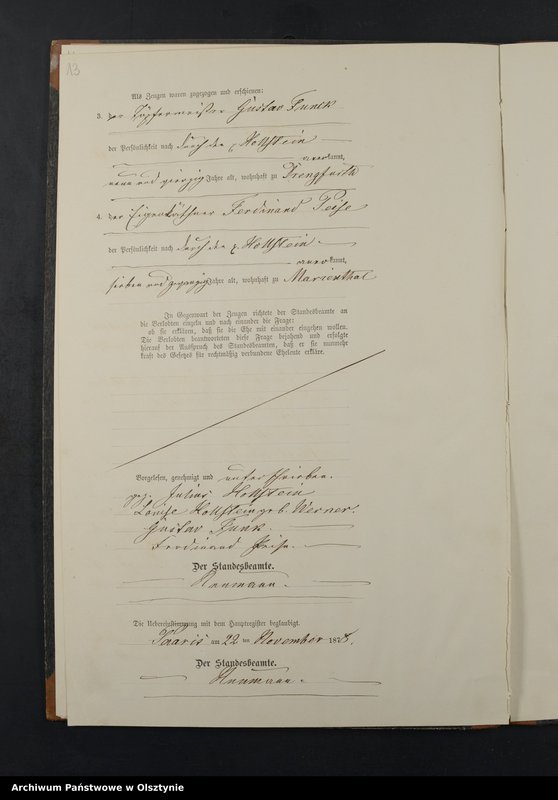 13
Als Zeugen waren zugezogen und erschienen:
3. der Töpfermeister Gustav Funck
der Persönlichkeit nach durch den p. Hollstein
anerkannt,
neun und vierzig Jahre alt, wohnhaft zu Drengfurth
4. der Eigenkäthner Ferdinand Peise
der Persönlichkeit nach durch den p. Hollstein
anerkannt,
sieben und zwanzig Jahre alt, wohnhaft zu Marienthal
In Gegenwart der Zeugen richtete der Standesbeamte an
die Verlobten einzeln und nach einander die Frage:
ob sie erklären, daß sie die Ehe mit einander eingehen wollen.
Die Verlobten beantworteten diese Frage bejahend und erfolgte
hierauf der Ausspruch des Standesbeamten, daß er sie nunmehr
kraft des Gesetzes für rechtmäßig verbundene Eheleute erkläre.
Vorgelesen, genehmigt und unterschrieben.
gez. Julius Hollstein
Louise Hollstein geb. Werner.
Gustav Funk.
Ferdinand Peise.
Der Standesbeamte.
Neumann.
Die Uebereinstimmung mit dem Hauptregister beglaubigt.
am 22 ten November 1878.
Der Standesbeamte.
Neumann.
Archiwum Państwowe w Olsztynie